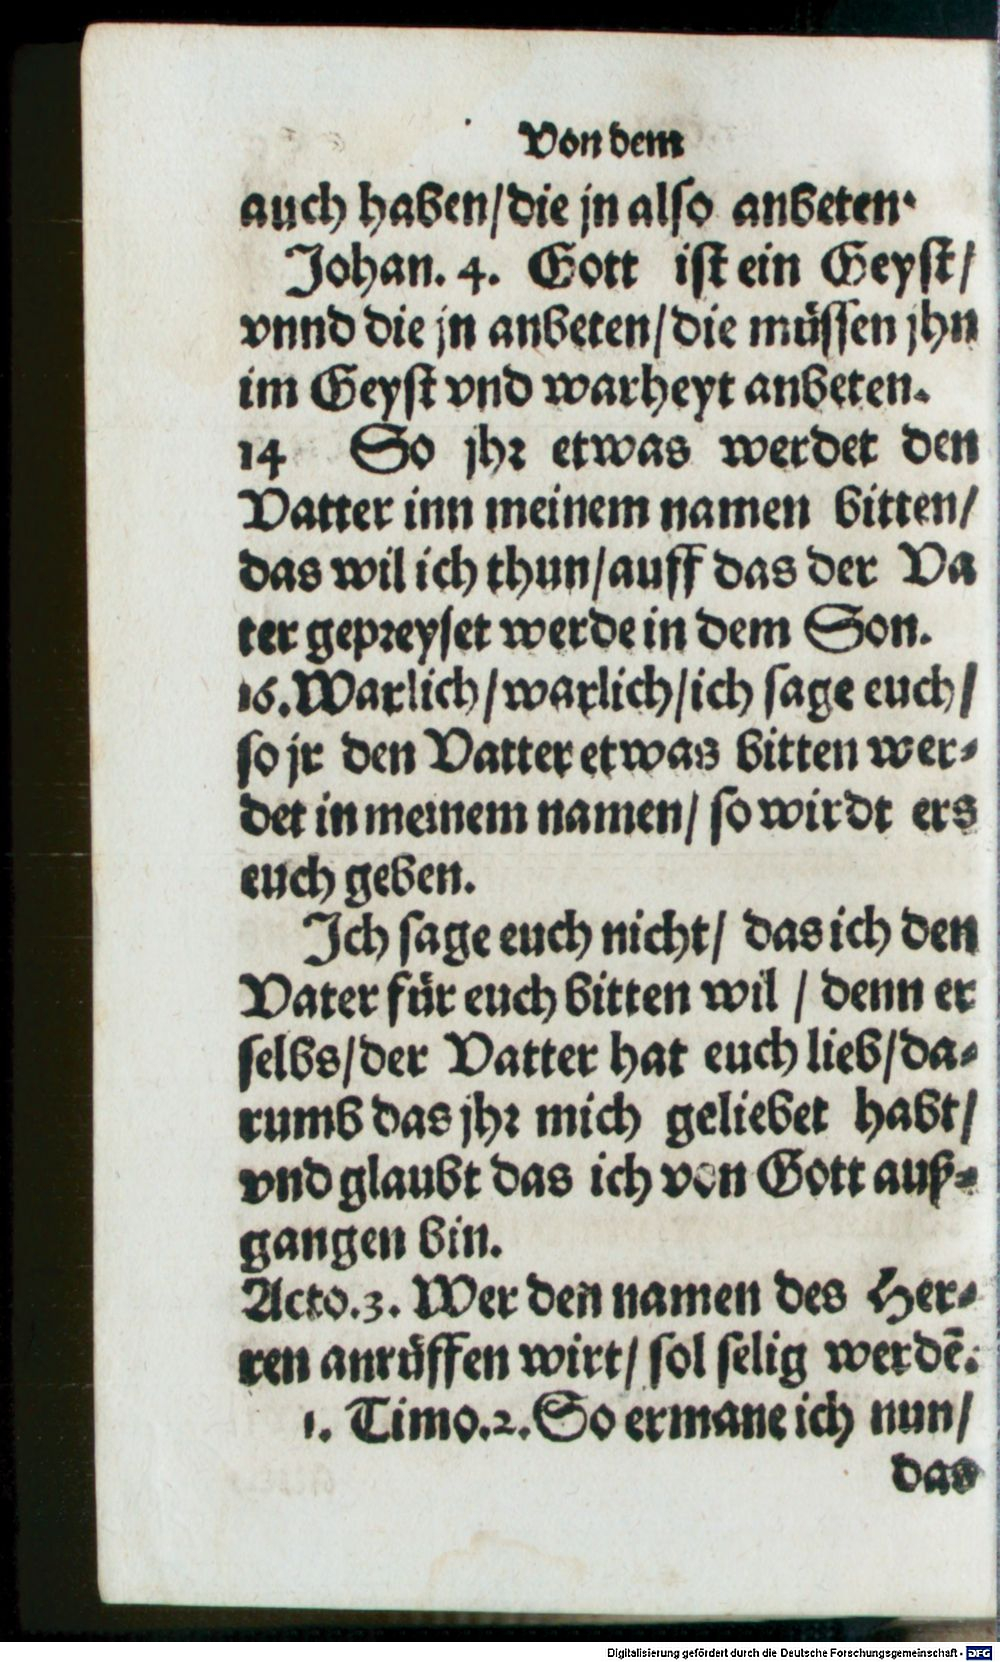 Von dem
auch haben/die jn also anbeten.
Johan. 4. Gott ist ein Geyst/
vnnd die jn anbeten/die müssen jhn
im Geyst vnd warheyt anbeten.
14 So jhr etwas werdet den
Vatter inn meinem namen bitten/
das wil ich thun/auff das der Va
ter gepreyset werde in dem Son.
16. Warlich/warlich/ich sage euch/
so jr den Vatter etwas bitten wer-
det in meinem namen/ so wirdt ers
euch geben.
Ich sage euch nicht/ das ich den
Vater für euch bitten wil / denn er
selbs/der Vatter hat euch lieb/da-
rumb das jhr mich geliebet habt/
vnd glaubt das ich von Gott auß-
gangen bin.
Acto.3. Wer den namen des Her-
ren anrüffen wirt/ sol selig werdē.
1. Timo.2. So ermane ich nun/
das
Digitalisierung gefördert durch die Deutsche Forschungsgemeinschaft - DFG